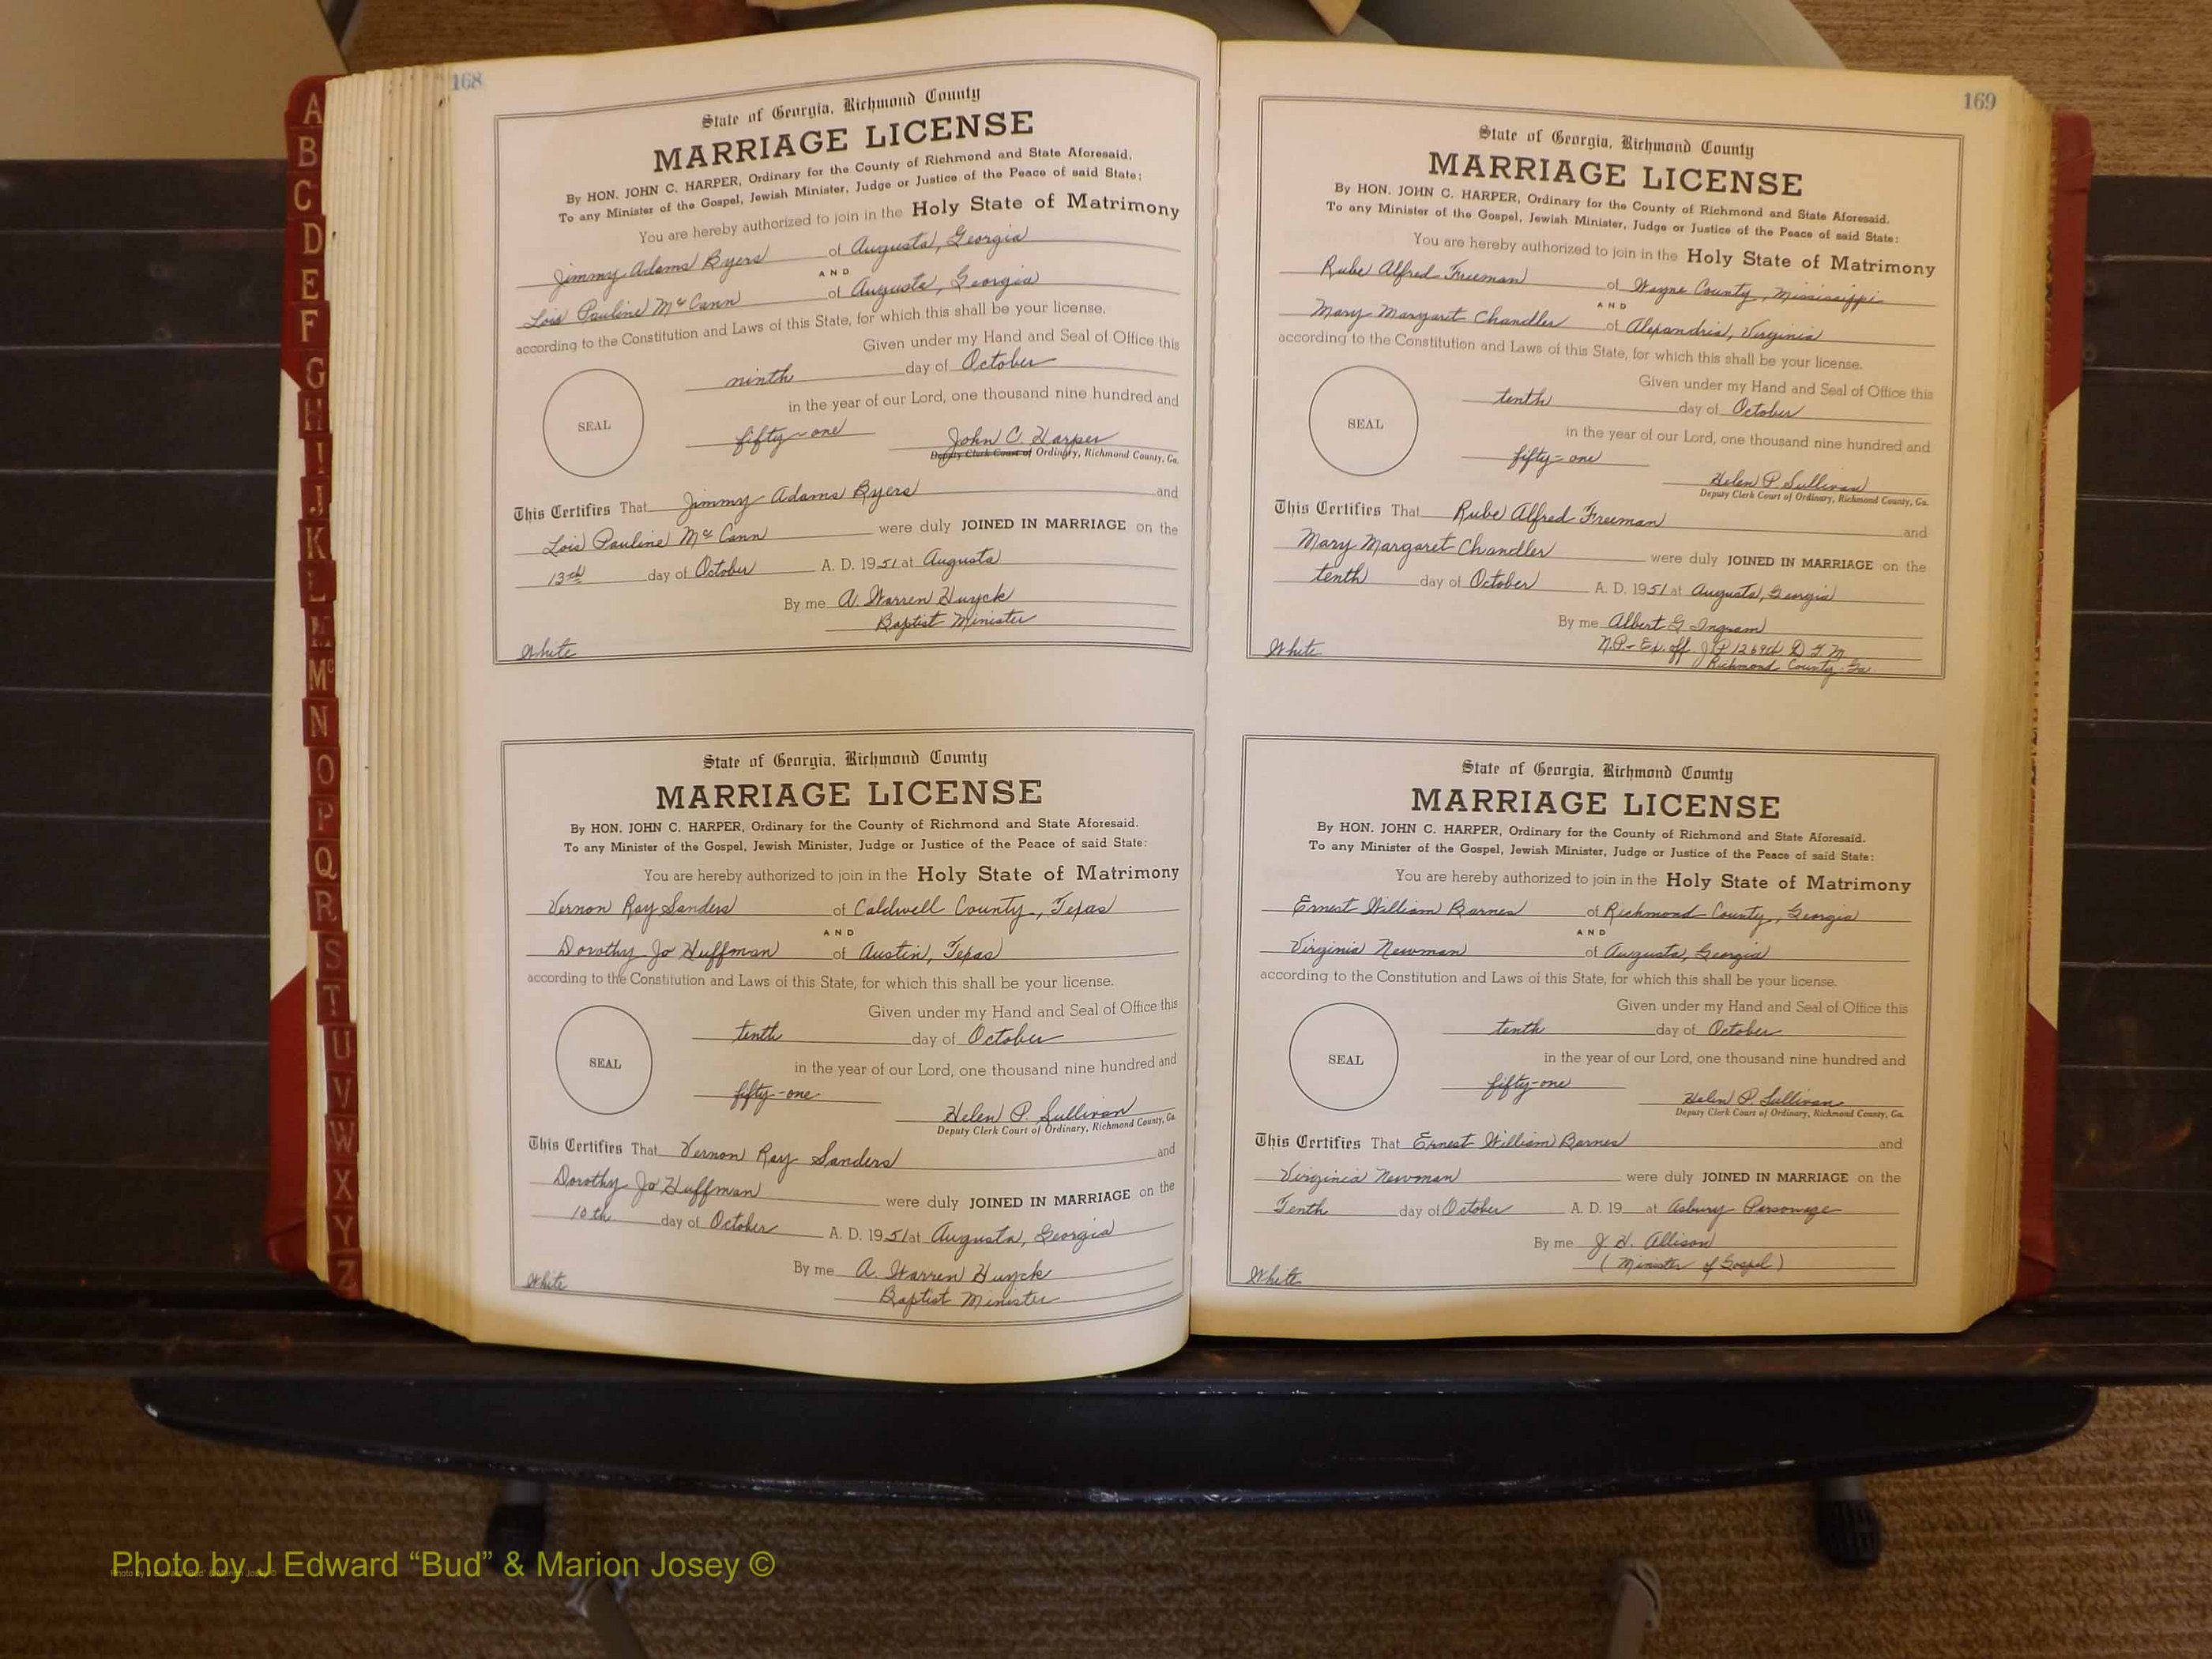 168
State of Georgia, Richmond County
MARRIAGE LICENSE
By HON. JOHN C. HARPER, Ordinary for the County of Richmond and State Aforesaid.
To any Minister of the Gospel, Jewish Minister, Judge or Justice of the Peace of said State:
You are hereby authorized to join in the Holy State of Matrimony
Jimmy Adams Byers of Augusta, Georgia
AND
Lois Pauline McCann of Augusta, Georgia
according to the Constitution and Laws of this State, for which this shall be your license.
Given under my Hand and Seal of Office this
ninth day of October
in the year of our Lord, one thousand nine hundred and
SEAL
fifty-one John C. Harper
Deputy Clerk Court of Ordinary, Richmond County, Ga.
This Certifies That Jimmy Adams Byers and
Lois Pauline McCann were duly JOINED IN MARRIAGE on the
13th day of October A. D. 1951 at Augusta
By me A. Warren Huyck
Baptist Minister
White
State of Georgia, Richmond County
MARRIAGE LICENSE
By HON. JOHN C. HARPER, Ordinary for the County of Richmond and State Aforesaid.
To any Minister of the Gospel, Jewish Minister, Judge or Justice of the Peace of said State:
You are hereby authorized to join in the Holy State of Matrimony
Vernon Ray Sanders of Caldwell County, Texas
AND
Dorothy Jo Huffman of Austin, Texas
according to the Constitution and Laws of this State, for which this shall be your license.
Given under my Hand and Seal of Office this
tenth day of October
SEAL
in the year of our Lord, one thousand nine hundred and
fifty-one
Helen P. Sullivan
Deputy Clerk Court of Ordinary, Richmond County, Ga.
This Certifies That Vernon Ray Sanders and
Dorothy Jo Huffman were duly JOINED IN MARRIAGE on the
10th day of October A. D. 1951 at Augusta, Georgia
By me A. Warren Huyck
Baptist Minister
White
169
State of Georgia, Richmond County
MARRIAGE LICENSE
By HON. JOHN C. HARPER, Ordinary for the County of Richmond and State Aforesaid.
To any Minister of the Gospel, Jewish Minister, Judge or Justice of the Peace of said State:
You are hereby authorized to join in the Holy State of Matrimony
Rube Alfred Freeman of Wayne County, Mississippi
AND
Mary Margaret Chandler of Alexandria, Virginia
according to the Constitution and Laws of this State, for which this shall be your license.
Given under my Hand and Seal of Office this
tenth day of October
SEAL
in the year of our Lord, one thousand nine hundred and
fifty-one
Helen P. Sullivan
Deputy Clerk Court of Ordinary, Richmond County, Ga.
This Certifies That Rube Alfred Freeman and
Mary Margaret Chandler were duly JOINED IN MARRIAGE on the
tenth day of October A. D. 1951 at Augusta, Georgia
By me Albert G. Ingram
N.P.- Ex. off. J.P. 1269th D G.M.
White
Richmond County Ga
State of Georgia, Richmond County
MARRIAGE LICENSE
By HON. JOHN C. HARPER, Ordinary for the County of Richmond and State Aforesaid.
To any Minister of the Gospel, Jewish Minister, Judge or Justice of the Peace of said State:
You are hereby authorized to join in the Holy State of Matrimony
Ernest William Barnes of Richmond County, Georgia
AND
Virginia Newman of Augusta, Georgia
according to the Constitution and Laws of this State, for which this shall be your license.
Given under my Hand and Seal of Office this
tenth day of October
SEAL
in the year of our Lord, one thousand nine hundred and
fifty-one
Helen P. Sullivan
Deputy Clerk Court of Ordinary, Richmond County, Ga.
This Certifies That Ernest William Barnes and
Virginia Newman were duly JOINED IN MARRIAGE on the
Tenth day of October A. D. 19 at Asbury Personage
By me J. H. Allison
(Minister of Gospel)
White
A
B
C
D
E
F
G
H
I
J
K
L
M
Mc
N
O
P
Q
R
S
T
U
V
W
X
Y
Z
Photo by J Edward “Bud” & Marion Josey ©
Photo by J Edward “Bud” & Marion Josey ©